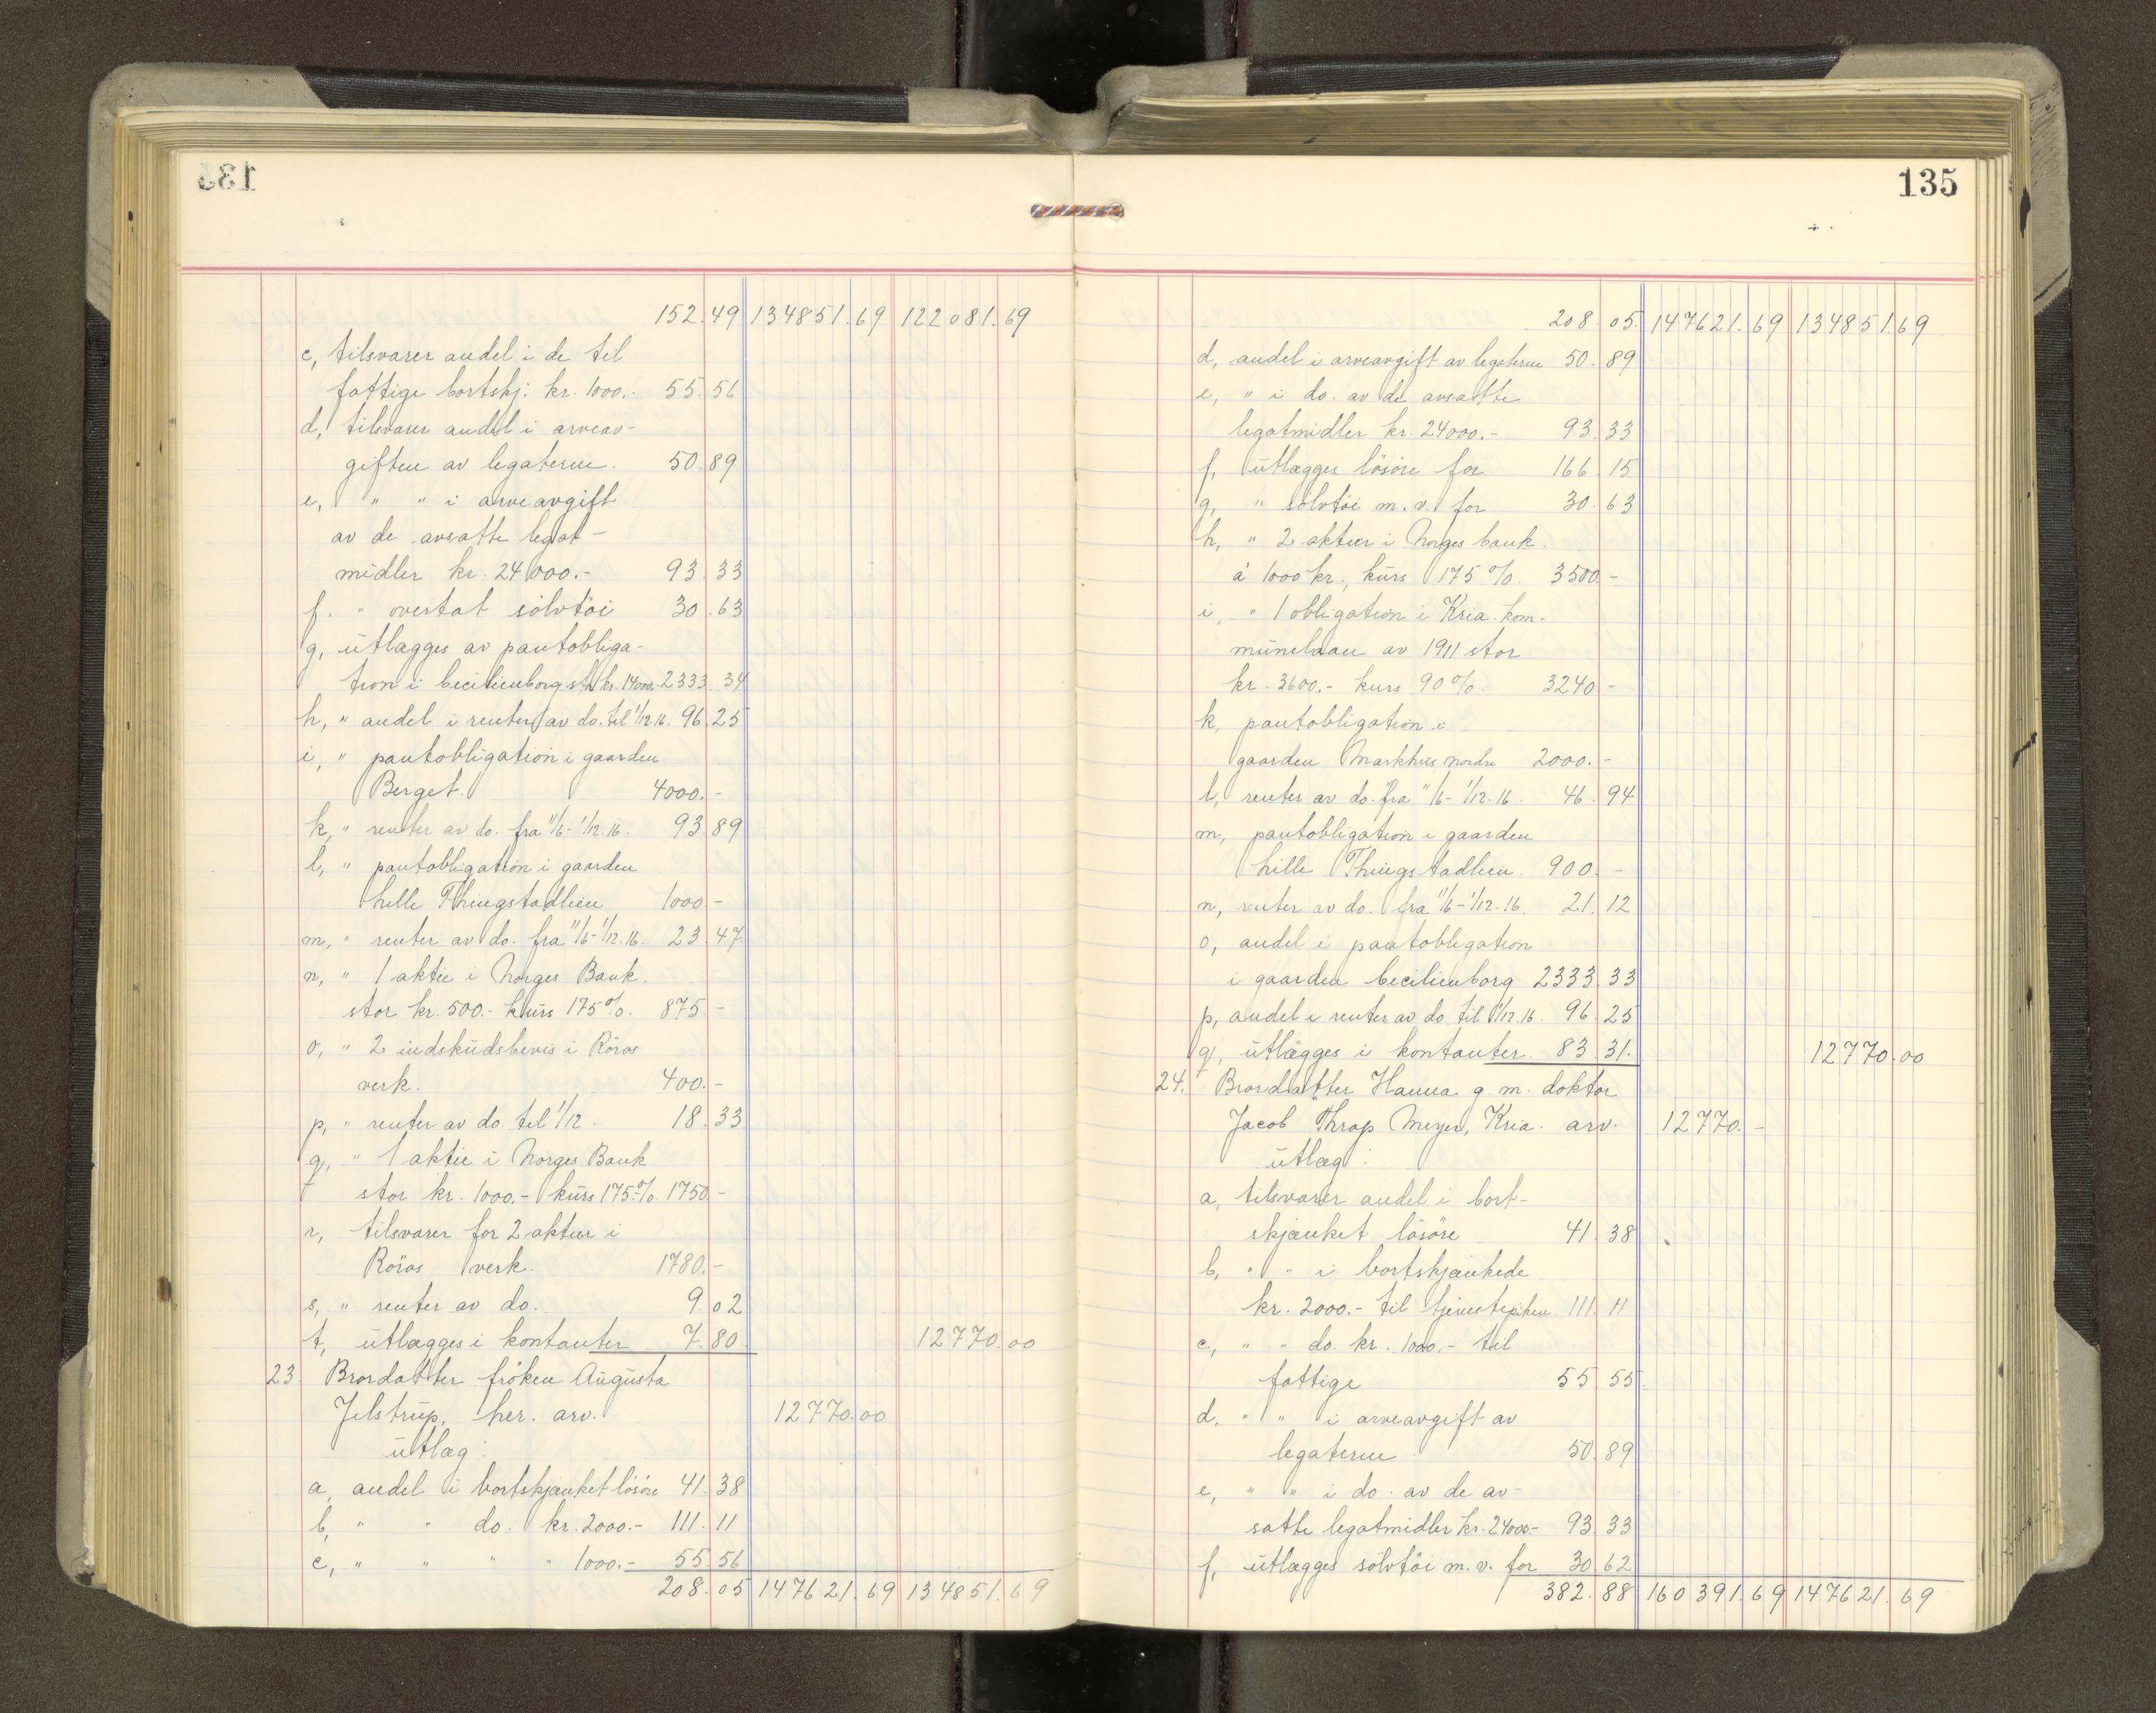 152.49 134851.69 122081.69
c, tilsvarer andel i de til
fattige bortskj. kr. 1000.- 55.56
d, tilsvarer andel i arveav-
giften av legaterne. 50.89
e, " " i arveavgift
av de avsatte legat-
midler kr. 24000.- 93.33
f. " overtat sölvtöi 30.63
g, utlægges av pantobliga-
tion i Cecilienborg st. kr. 14000. 2333.34
h, " andel i renter av do. til 1/12.16. 96.25
i, " pantobligation i gaarden
Berget. 4000.-
k, " renter av do. fra 11/6-1/12.16. 93.89
l, " pantobligation i gaarden
Lille Thingstadlien 1000.-
m, " renter av do. fra 11/6-1/12.16. 23.47
n, " 1 aktie i Norges Bank
stor kr. 500.- kurs 175%. 875.-
o, " 2 indskudsbevis i Röros
verk. 400.-
p, " renter av do. til 1/12. 18.33
q, " 1 aktie i Norges Bank
stor kr. 1000.- kurs 175.% 1750.-
r, tilsvarer for 2 aktier i
Röros verk. 1780.-
s, " renter av do. 9.02
t, utlægges i kontanter 7.80 12770.00
23. Brordatter fröken Augusta
Jelstrup, her. arv. 12770.00
utlæg:
a, andel i bortskjænket lösöre 41.38
b, " " do. kr. 2000.- 111.11
c, " " " " 1000.- 55.56
208.05 147621.69 134851.69
135
208.05. 147621.69 134851.69
d, andel i arveavgift av legaterne 50.89
e, " i do. av de avsatte
legatmidler kr. 24000.- 93.33
f, utlægges lösöre for 166.15
g, " sölvtöi m.v. for 30.63
h, " 2 aktier i Norges bank.
á 1000 kr., kurs 175%. 3500.-
i, " 1 obligation i Kria. kom-
munelaan av 1911 stor
kr. 3600.- kurs 90%. 3240.-
k, pantobligation i
gaarden nordre 2000.-
l, renter av do. fra 11/6-1/12.16. 46.94
m, pantobligation i gaarden
Lille Thingstadlien 900.-
n, renter av do. fra 11/6-1/12.16. 21.12
o, andel i pantobligation
i gaarden Cecilienborg 2333.33
p, andel i renter av do. til 1/12.16. 96.25
q, utlægges i kontanter. 83.31. 12770.00
24. Brordatter Hanna g. m. doktor
Jacob Thrap Meyer, Kria. arv. 12770.-
utlæg:
a, tilsvarer andel i bort-
skjænket lösöre 41.38
b, " " i bortskjænkede
kr. 2000.- til tjenestepiken. 111.11
c, " " do. kr. 1000.- til
fattige 55.55
d. " " i arveavgift av
legaterne 50.89
e, " " i do. av de av-
satte legatmidler kr. 24000.- 93.33
f, utlægges sölvtöi m.v. for 30.62
382.88 160391.69 147621.69